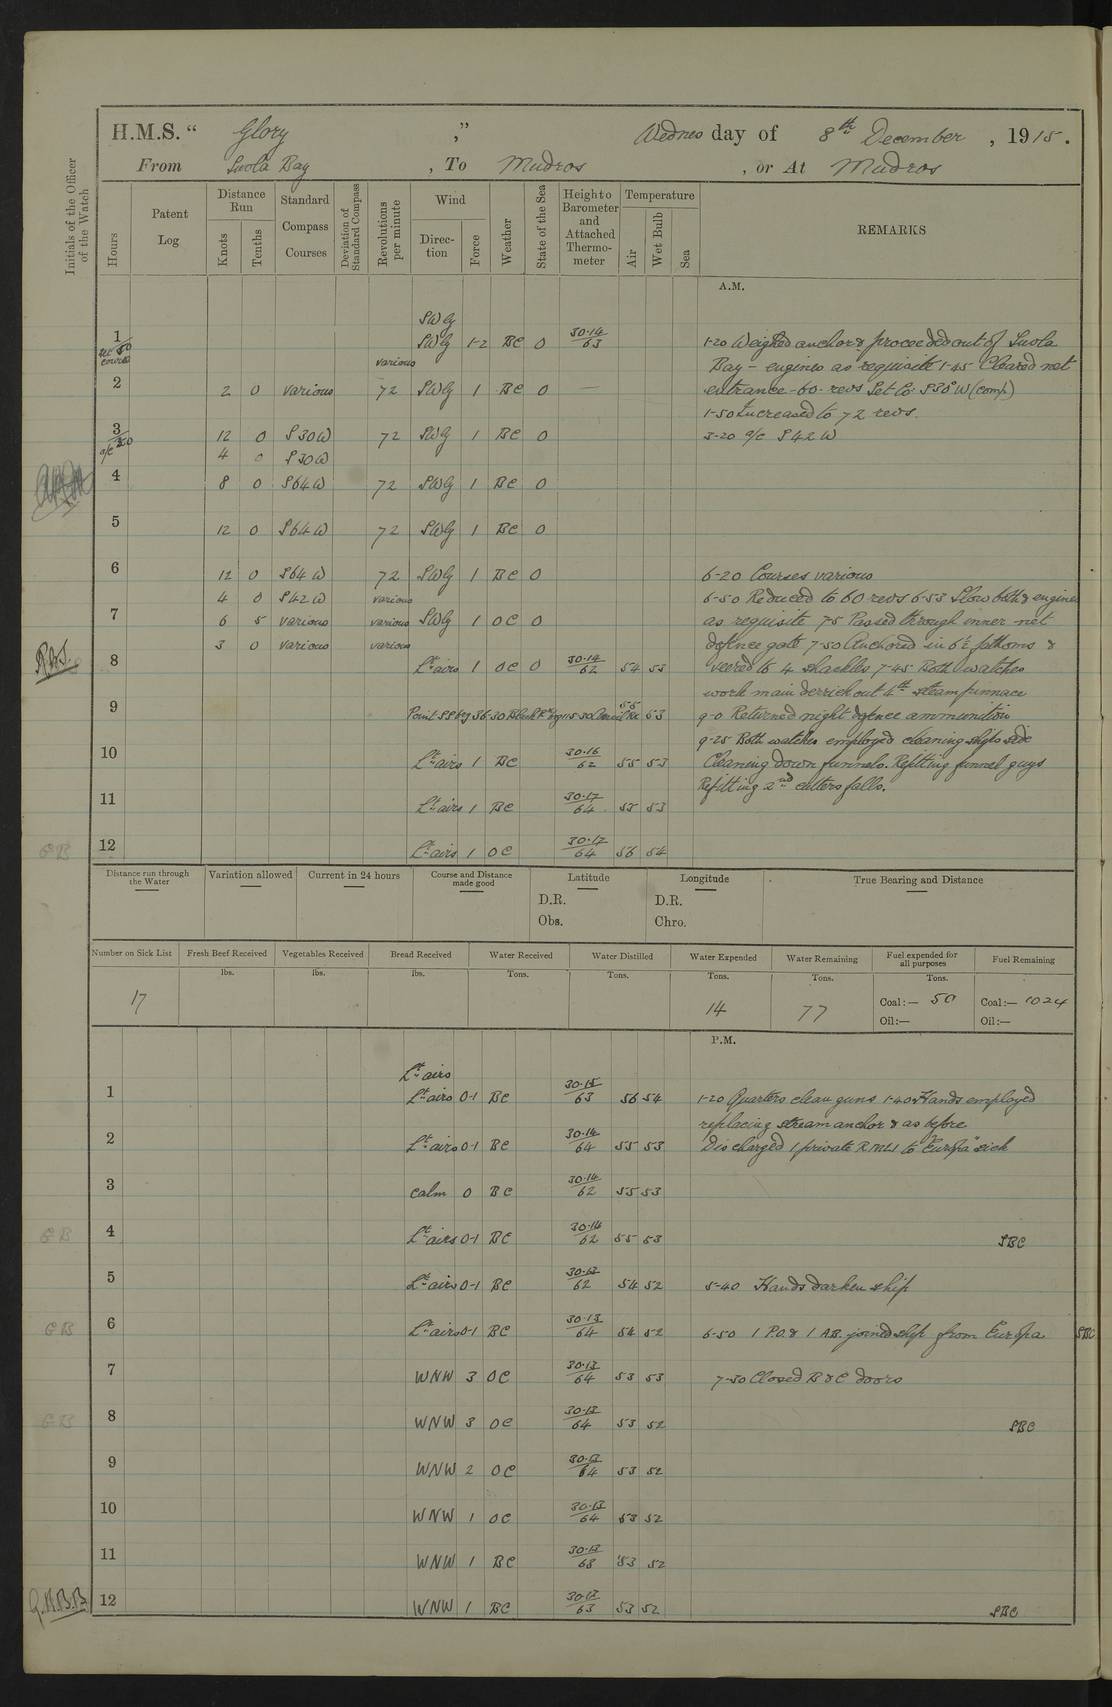 H.M.S. “ Glory ,” Wednes day of 8th December , 1915.
From Suvla Bay , To Mudros , or At Mudros
Initials of the Officer of the Watch
Hours
Patent Log
Distance Run
Knots
Tenths
Standard Compass Courses
Deviation of Standard Compass
Revolutions per minute
Wind
Direction
Force
Weather
State of the Sea
Height of Barometer and Attached Thermometer
Temperature
Air
Wet Bulb
Sea
REMARKS
A.M.
SWly
1 SWly 1-2 BC 0 30·14/63 1-20 Weighed anchor & proceeded out of Suvla
various Bay - engines as requisite 1-45 Cleared net
2 2 0 various 72 SWly 1 BC 0 — entrance - 60 revs Set Co S 35 W (comp)
1-50 Increased to 72 revs.
3 12 0 S 30 W 72 SWly 1 BC 0 3-20 a/c S 42 W
4 0 S 30 W
4 8 0 S 64 W 72 SWly 1 BC 0
5 12 0 S 64 W 72 SWly 1 BC 0
6 12 0 S 64 W 72 SWly 1 BC 0 6-20 Courses various
4 0 S 42 W various 6-50 Reduced to 60 revs 6-53 Slow both & engines
7 6 5 various various SWly 1 OC 0 as requisite 7-5 Passed through inner net
3 0 various various defence gate 7-50 Anchored in 6½ fathoms &
8 Lt airs 1 OC 0 30·14/62 54 53 veered to 4 shackles 7-45 Both watches
work main derrick out 4th steam pinnace
9 53 9-0 Returned night defence ammunition
9-25 Both watches employed cleaning ships side
10 Lt airs 1 BC 30·16/62 55 53 Cleaning down funnels. Refitting funnel guys
Refitting 2nd cutters falls.
11 Lt airs 1 BC 30·17/64 55 53
12 Lt airs 1 OC 30·17/64 56 54
Distance run through the Water
Variation allowed
Current in 24 hours
Course and Distance made good
Latitude
D.R.
Obs.
Longitude
D.R.
Chro.
True Bearing and Distance
Number on Sick List
Fresh Beef Received
Vegetables Received
Bread Received
Water Received
Water Distilled
Water Expended
Water Remaining
Fuel expended for all purposes
Fuel Remaining
lbs. lbs. lbs. Tons. Tons. Tons. Tons. Tons.
17 14 77 Coal:— 50 Coal:— 1024
Oil:— Oil:—
P.M.
Lt airs
1 Lt airs 0-1 BC 30·15/63 56 54 1-20 Quarters clean guns 1-40 Hands employed
replacing stream anchor & as before
2 Lt airs 0-1 BC 30·14/64 55 53 Discharged 1 private RMLI to "Europa" sick
3 calm 0 BC 30·14/62 55 53
4 Lt airs 0-1 BC 30·14/62 55 53 SBC
5 Lt airs 0-1 BC 30·13/62 54 52 5-40 Hands darken ship
6 Lt airs 0-1 BC 30·13/64 54 52 6-50 1 P.O. & 1 A.B. joined ship from Europa SBC
7 WNW 3 OC 30·13/64 53 53 7-30 Closed B & C doors
8 WNW 3 OC 30·13/64 53 52 SBC
9 WNW 2 OC 30·13/64 53 52
10 WNW 1 OC 30·13/64 53 52
11 WNW 1 BC 30·13/63 53 52
G.H.B.B. 12 WNW 1 BC 30·13/63 53 52 SBC